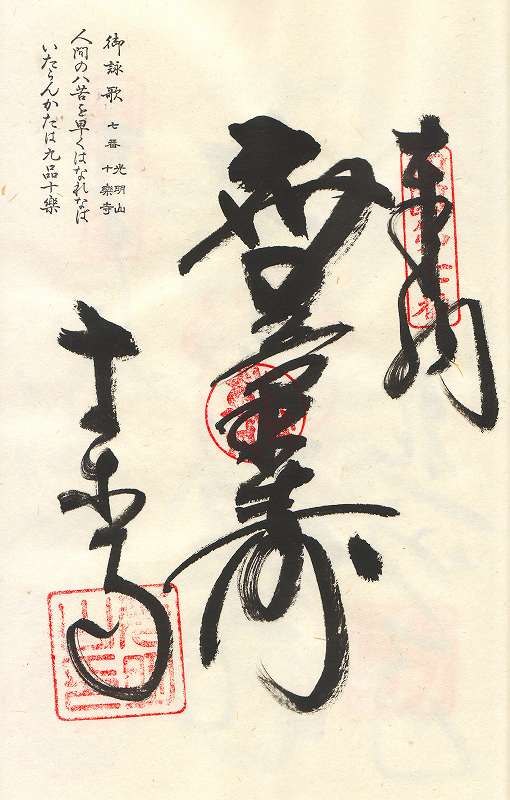 奉納
無量寿
十楽寺
御詠歌 七番 光明山
十樂寺
人間の八苦を早くはなれなば
いたらんかたは九品十樂